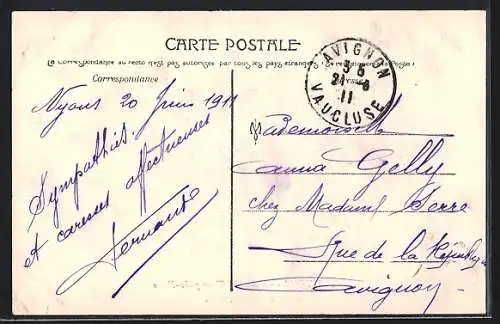 CARTE POSTALE
La Correspondance au recto n'est pas autorisée par tous les pays étrangers
Correspondance
Nyons 20 Juin 1911
Sympathies
et caresses affectueuses
Fernande
AVIGNON
24-6
11
VAUCLUSE
Mademoiselle
Anna Gelly
chez Madame Serre
Rue de la République
Avignon